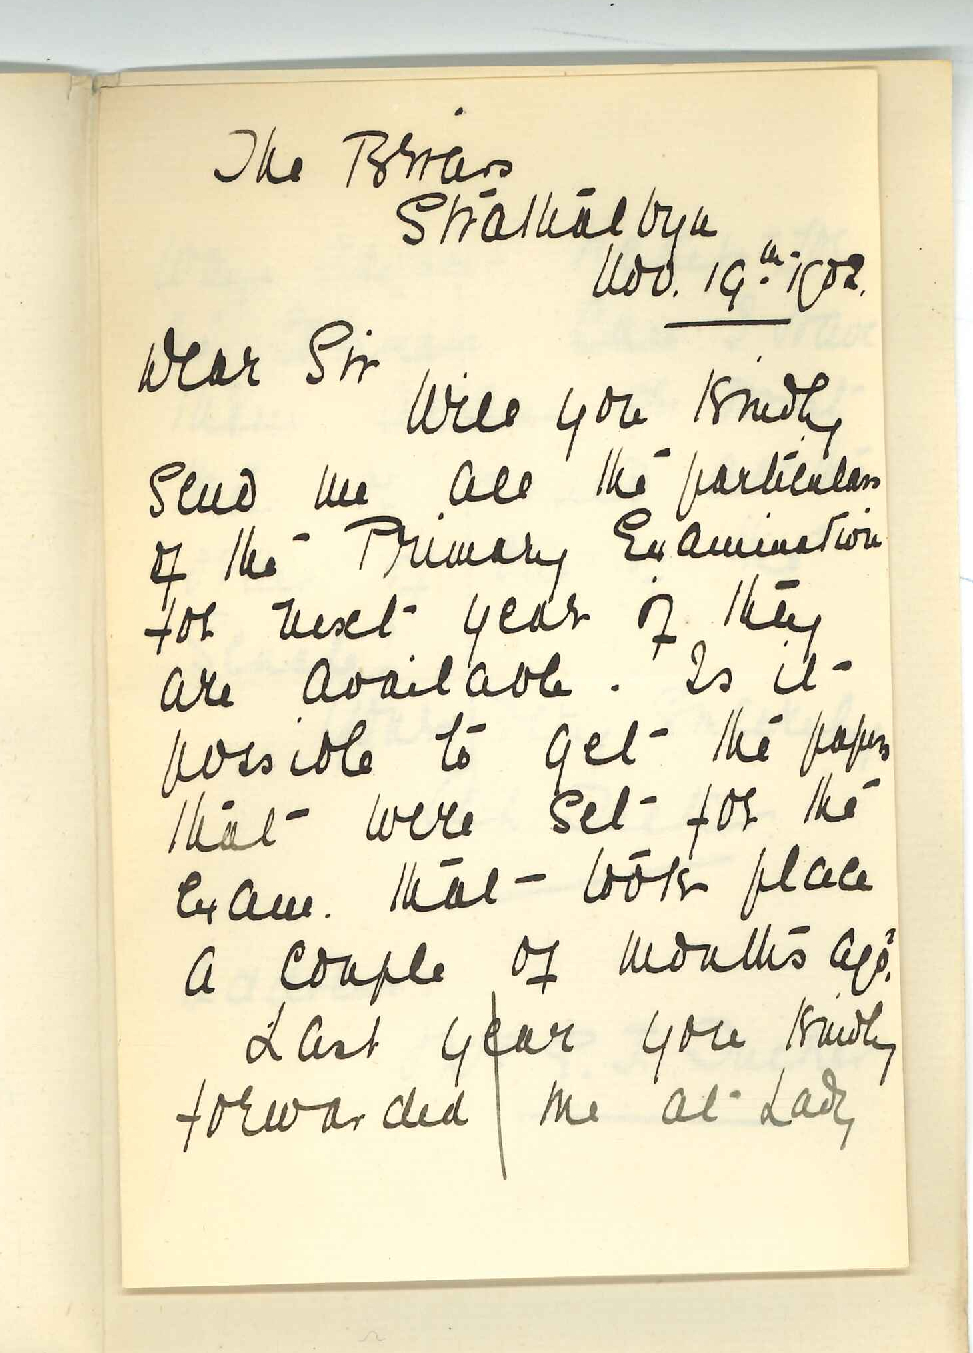 The Briars
Strathalbyn
Nov. 19th 1902.
Dear Sir
Will you kindly
send me all the particulars
of the Primary Examination
for next year if they
are available. Is it
possible to get the papers
that were set for the
exam. that took place
a couple of months ago?
Last year you kindly
forwarded me at Lady